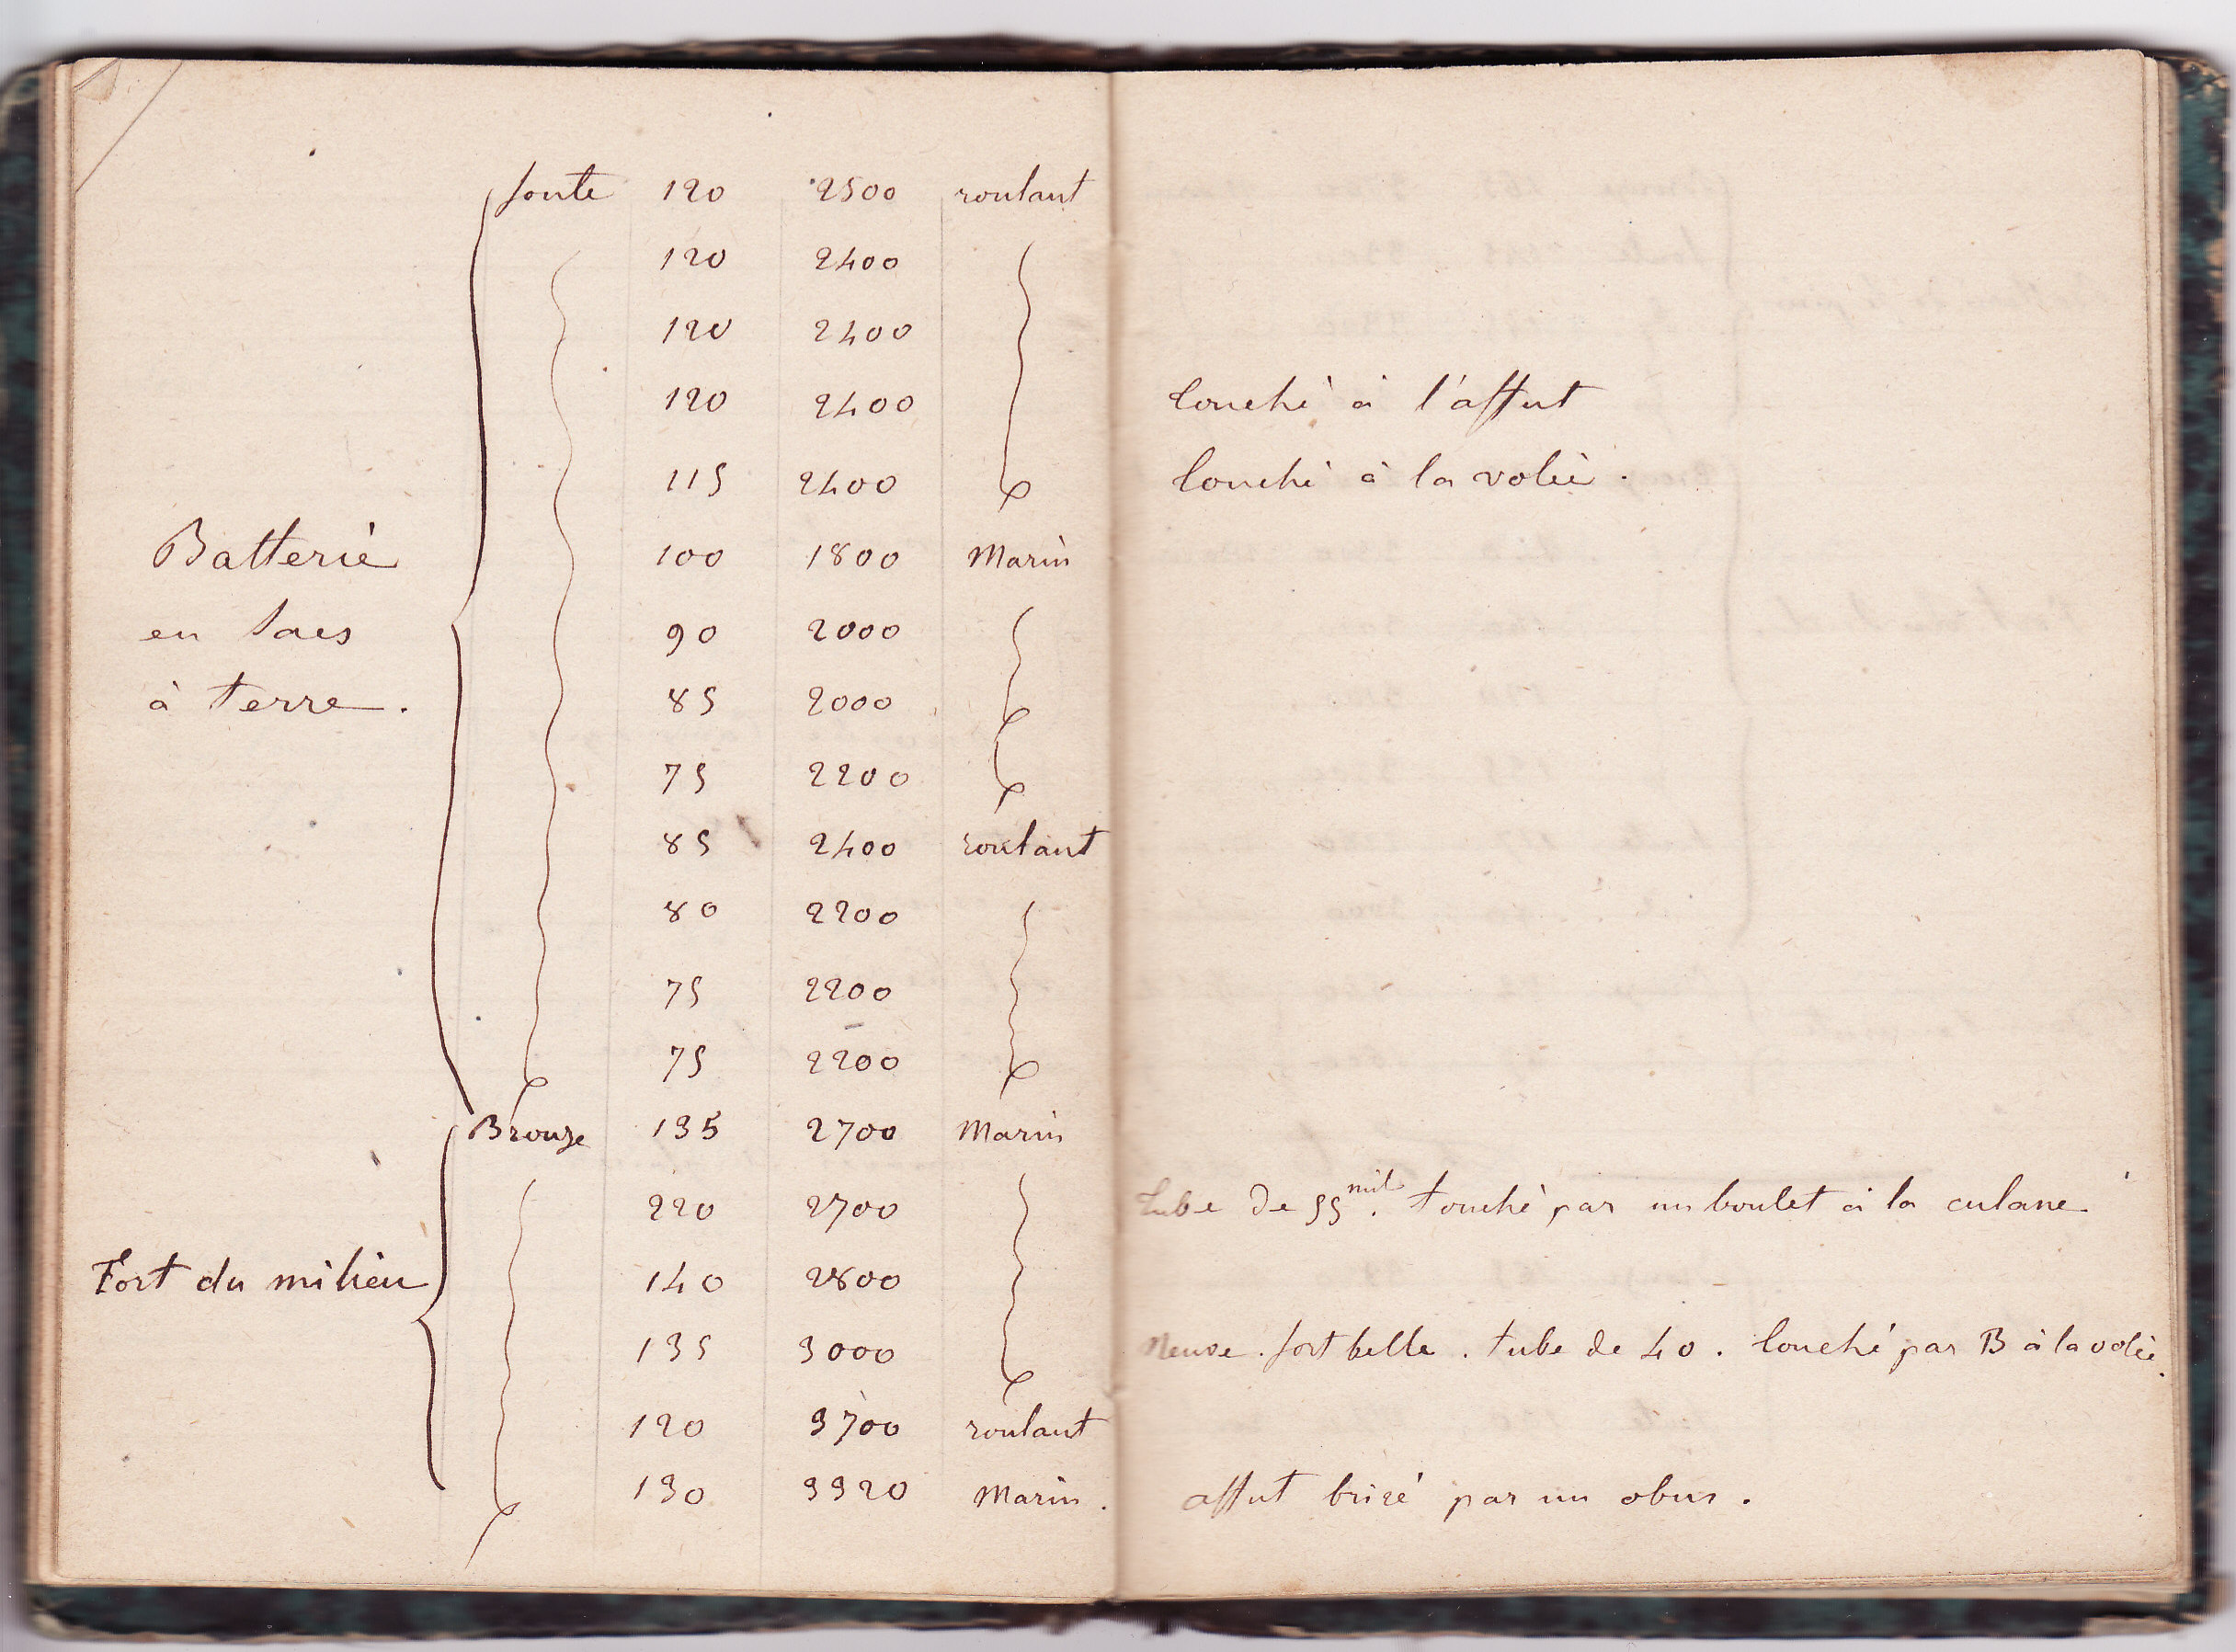 fonte 120 2500 roulant
120 2400
120 2400
120 2400 touché à l'affut
115 2400 touché à la volée.
Batterie 100 1800 Marin
en sacs 90 2000
à terre. 85 2000
75 2200
85 2400 roulant
80 2200
75 2200
75 2200
Bronze 135 2700 Marin
220 2700 tube de 55 mil. touché par un boulet à la culane
Fort du milieu 140 2800
135 3000 Neuve. fort belle. tube de 40. touché par B à la volée.
120 3700 roulant
130 3320 Marin. affut brisé par un obus.